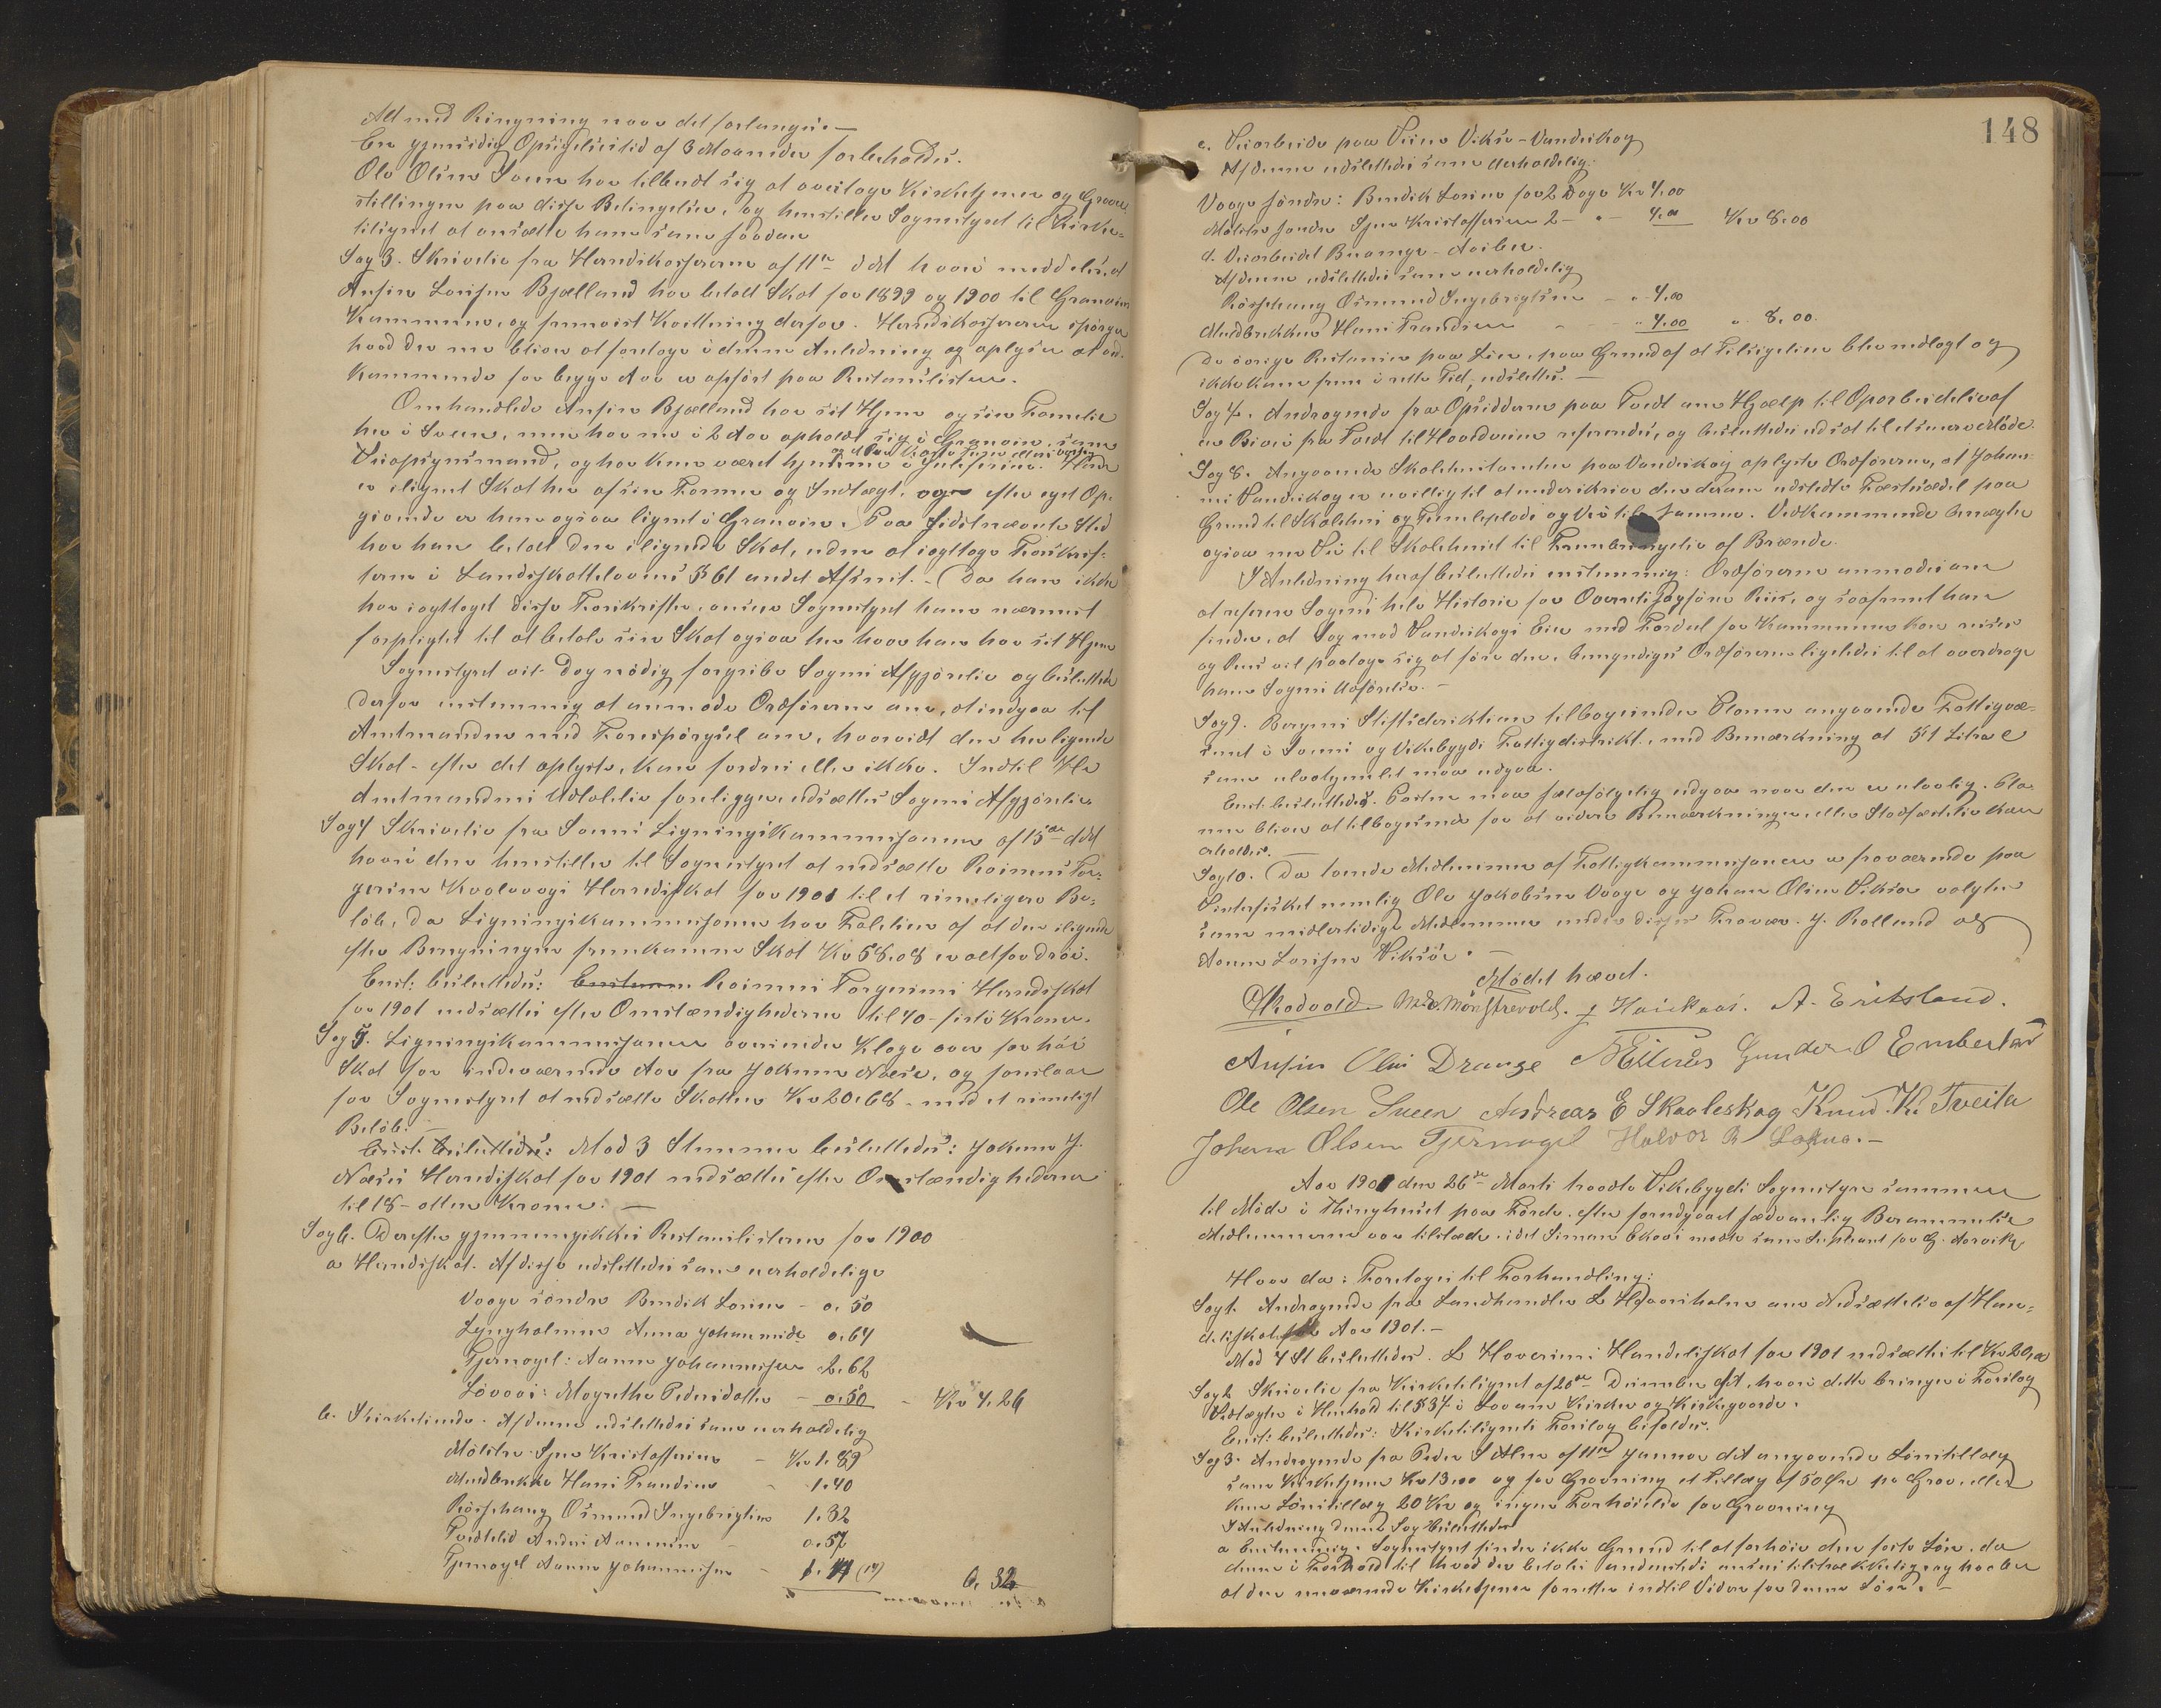 Alt med Ringning naar det forlanges. —
En gjensidig Opsigelsestid af 3 Maaneder forbeholdes.
Ole Olsen Sveen har tilbudt sig at overtage Kirketjener og Graver-
stillingen paa disse Betingelser, og henstiller Sognestyret til Kirke-
tilsynet at ansætte ham som saadan
Sag 3. Skrivelse fra Herredskassereren af 11te ds hvori meddeles, at
Ansin Larsen Bjælland har betalt Skat for 1899 og 1900 til Granvin
Kommune, og fremvist Kvittering derfor. Herredskassereren spørger
hvad der nu bliver at foretage i denne Anledning og oplyser at ved-
kommende for begge Aar er opført paa Restanselisten.
Omhandlede Ansin Bjælland har sit Hjem og sin Familie
her i Sveen, men har nu i 2 Aar opholdt sig i Granvin som
Veiopsynsmand, og har kun været hjemme i Juleferien. Han
er ilignet Skat her af sin Formue og Indtægt, og efter eget Op-
givende er han ogsaa lignet i Granvin. Paa sidstnævnte Sted
har han betalt den ilignede Skat, uden at iagttage Forskrif-
terne i Landsskattelovens § 61 andet Afsnit. - Da han ikke
har iagttaget disse Forskrifter, anser Sognestyret ham nærmest
forpligtet til at betale sin Skat ogsaa her hvor han har sit Hjem
Sognestyret vil dog nødig forgribe Sagens Afgjørelse og besluttede
derfor enstemmig at anmode Ordføreren om, at indgaa til
Amtmanden med Forespørgsel om, hvorvidt den her lignede
Skat - efter det oplyste, kan fordres eller ikke. Indtil Hr
Amtmandens Udtalelse foreligger, udsættes Sagens Afgjørelse.
Sag 4 Skrivelse fra Sveens Ligningskommission af 15de ds
hvori den henstiller til Sognestyret at nedsætte Rasmus Tor-
gersen Kvalevaags Herredsskat for 1901 til et rimeligere Be-
løb, da Ligningskommissionen har Følelsen af at den ilignede
efter Beregningen fremkomne Skat Kr 58.08 er altfor drøi.
Enst: besluttedes: Rasmus Torgersens Herredsskat
for 1901 nedsættes efter Omstændighederne til 40 - firti Kroner.
Sag 5. Ligningskommissionen oversender Klage over for høi
Skat for indeværende Aar fra Jokum Næse, og foreslaar
for Sognestyret at nedsætte Skatten Kr 20.68 - med et rimeligt
Beløb. —
Enst. besluttedes: Mod 3 Stemmer besluttedes: Jokum J.
Næses Herredsskat for 1901 nedsættes efter Omstændighederne
til 18 - atten Kroner. —
Sag 6. Derefter gjennemgikkes Restanselisterne for 1900
a Herredsskat. Af disse udslettedes som uerholdelige
Vaage søndre Bendik Larsen - 0.50
Lyngholmen Anna Johannesd 0.64
Tjernagel: Aamen Johannessen 2.62
Løvaas: Magrethe Pedersdatter - 0.50 - Kr 4.26
b. Kirketiende. Af denne udslettedes som uerholdelig
Mölstre Sjur Kristoffersen - Kr 1.89
Mudbrekke Hans Trandsen - 1.40
Røsshaug Osmund Ingebrigtsen 1.32
Tveitelid Anders Aamunsen - 0.57
Tjernagel Aamen Johannessen - 1.14 (14) 6.32
148
c. Veiarbeide paa Veien Viksø - Vandaskog
Af denne udslettedes som uerholdelig:
Vaage søndre: Bendik Larsen for 2 Dage Kr 4.00
Mölstre søndre Sjur Kristoffersen 2 - " - 4.00 Kr 8.00
d. Veiarbeidet Buange - Aasben.
Af denne udslettedes som uerholdelig
Røsshaug Osmund Ingebrigtsen - " - 4.00
Mudbrekken Hans Trandsen - - " 4.00 " 8.00.
De øvrige Restancer paa Liv, paa Grund af at Tilsigelsen blev nedlagt og
ikke kom frem i rette Tid, udslettes. —
Sag 7. Andragende fra Opsidderne paa Tvedt om Hjælp til Oparbeidelse af
en Bivei fra Tvedt til Hovedveien refereredes, og besluttedes udsat til et senere Møde.
Sag 8. Angaaende Skolehustomten paa Vandaskog oplyste Ordføreren, at Johan-
nes Vandaskog er uvillig til at underskrive den derom udstedte Fæsteseddel paa
Grund til Skolehus og Tumleplads og Vei til samme. Vedkommende benægter
ogsaa nu Vei til Skolehuset til Frembringelse af Brænde.
I Anledning heraf besluttedes enstemmig: Ordføreren anmodes om
at referere Sagens hele Historie for Overretssagfører Riis, og saafremt han
finder, at Sag mod Vandaskogs Eier med Fordel for Kommunen kan reises
og Riis vil paatage sig at føre den, bemyndiges Ordføreren ligeledes til at overdrage
ham Sagens Udførelse. —
Sag 9. Bergens Stiftsdirektion tilbagesender Planen angaaende Fattigvæ-
senet i Sveens og Vikebygds Fattigdistrikt, med Bemærkning at § 1 Litra e
som ulovhjemlet maa udgaa.
Enst. besluttedes. Posten maa selvfølgelig udgaa naar den er ulovlig. Pla-
nen bliver at tilbagesende for at videre Bemærkninger eller Stadfæstelse kan
erholdes. —
Sag 10. Da tvende Medlemmer af Fattigkommissionen er fraværende paa
Vinterfisket nemlig Ole Jakobsen Vaage og Johan Olsen Viksøe valgtes
som midlertidige Medlemmer under disses Fravær. J. Rolland og
Aamen Larsen Viksøe. —
Mødet hævet.
O Rødvold M. Mønstrevold. J Haukaas. A. Eritsland.
Ansin Olai Drange Gunder O Emberland
Ole Olsen Sveen Andreas E Skaaleskog Knud. K. Tveita
Johan Olsen Tjernagel Halvor B Løkna. —
Aar 1901 den 26de Marts havdte Vikebygds Sognestyre sammen
til Møde i Thinghuset paa Førde efter forudgaaet sædvanlig Berammelse
Medlemmerne var tilstede, idet Simon Ekaas mødte som Supleant for G. Aarvik.
Hvor da: Foretoges til Forhandling:
Sag 1. Andragende fra Landhandler L Haaversholm om Nedsættelse af Han-
delsskat for Aar 1901. —
Mod 4 St besluttedes. L Haversens Handelsskat for 1901 nedsættes til Kr 20,00
Sag 2 Skrivelse fra Kirketilsynet af 20de December f.A. hvori dette bringer i Forslag
Vedtægter i Henhold til § 37 i Lov om Kirker og Kirkegaarde.
Enst: besluttedes: Kirketilsynets Forslag bifaldes.
Sag 3. Andragende fra Peder S Alne af 11te Januar dA angaaende Lønstillæg
som Kirketjener Kr 13.00 og for Gravning et Tillæg af 50 Øre pr Grav, eller
kun Lønstillæg 20 Kr og ingen Forhøielse for Gravning
I Anledning denne Sag besluttedes
a Enstemmig. Sognestyret finder ikke Grund til at forhøie den faste Løn, da
denne i Forhold til hvad der betales andensteds ansees tilstrækkelig, og haaber
at den nuværende Kirketjener fortsætter indtil Videre for denne Løn. —